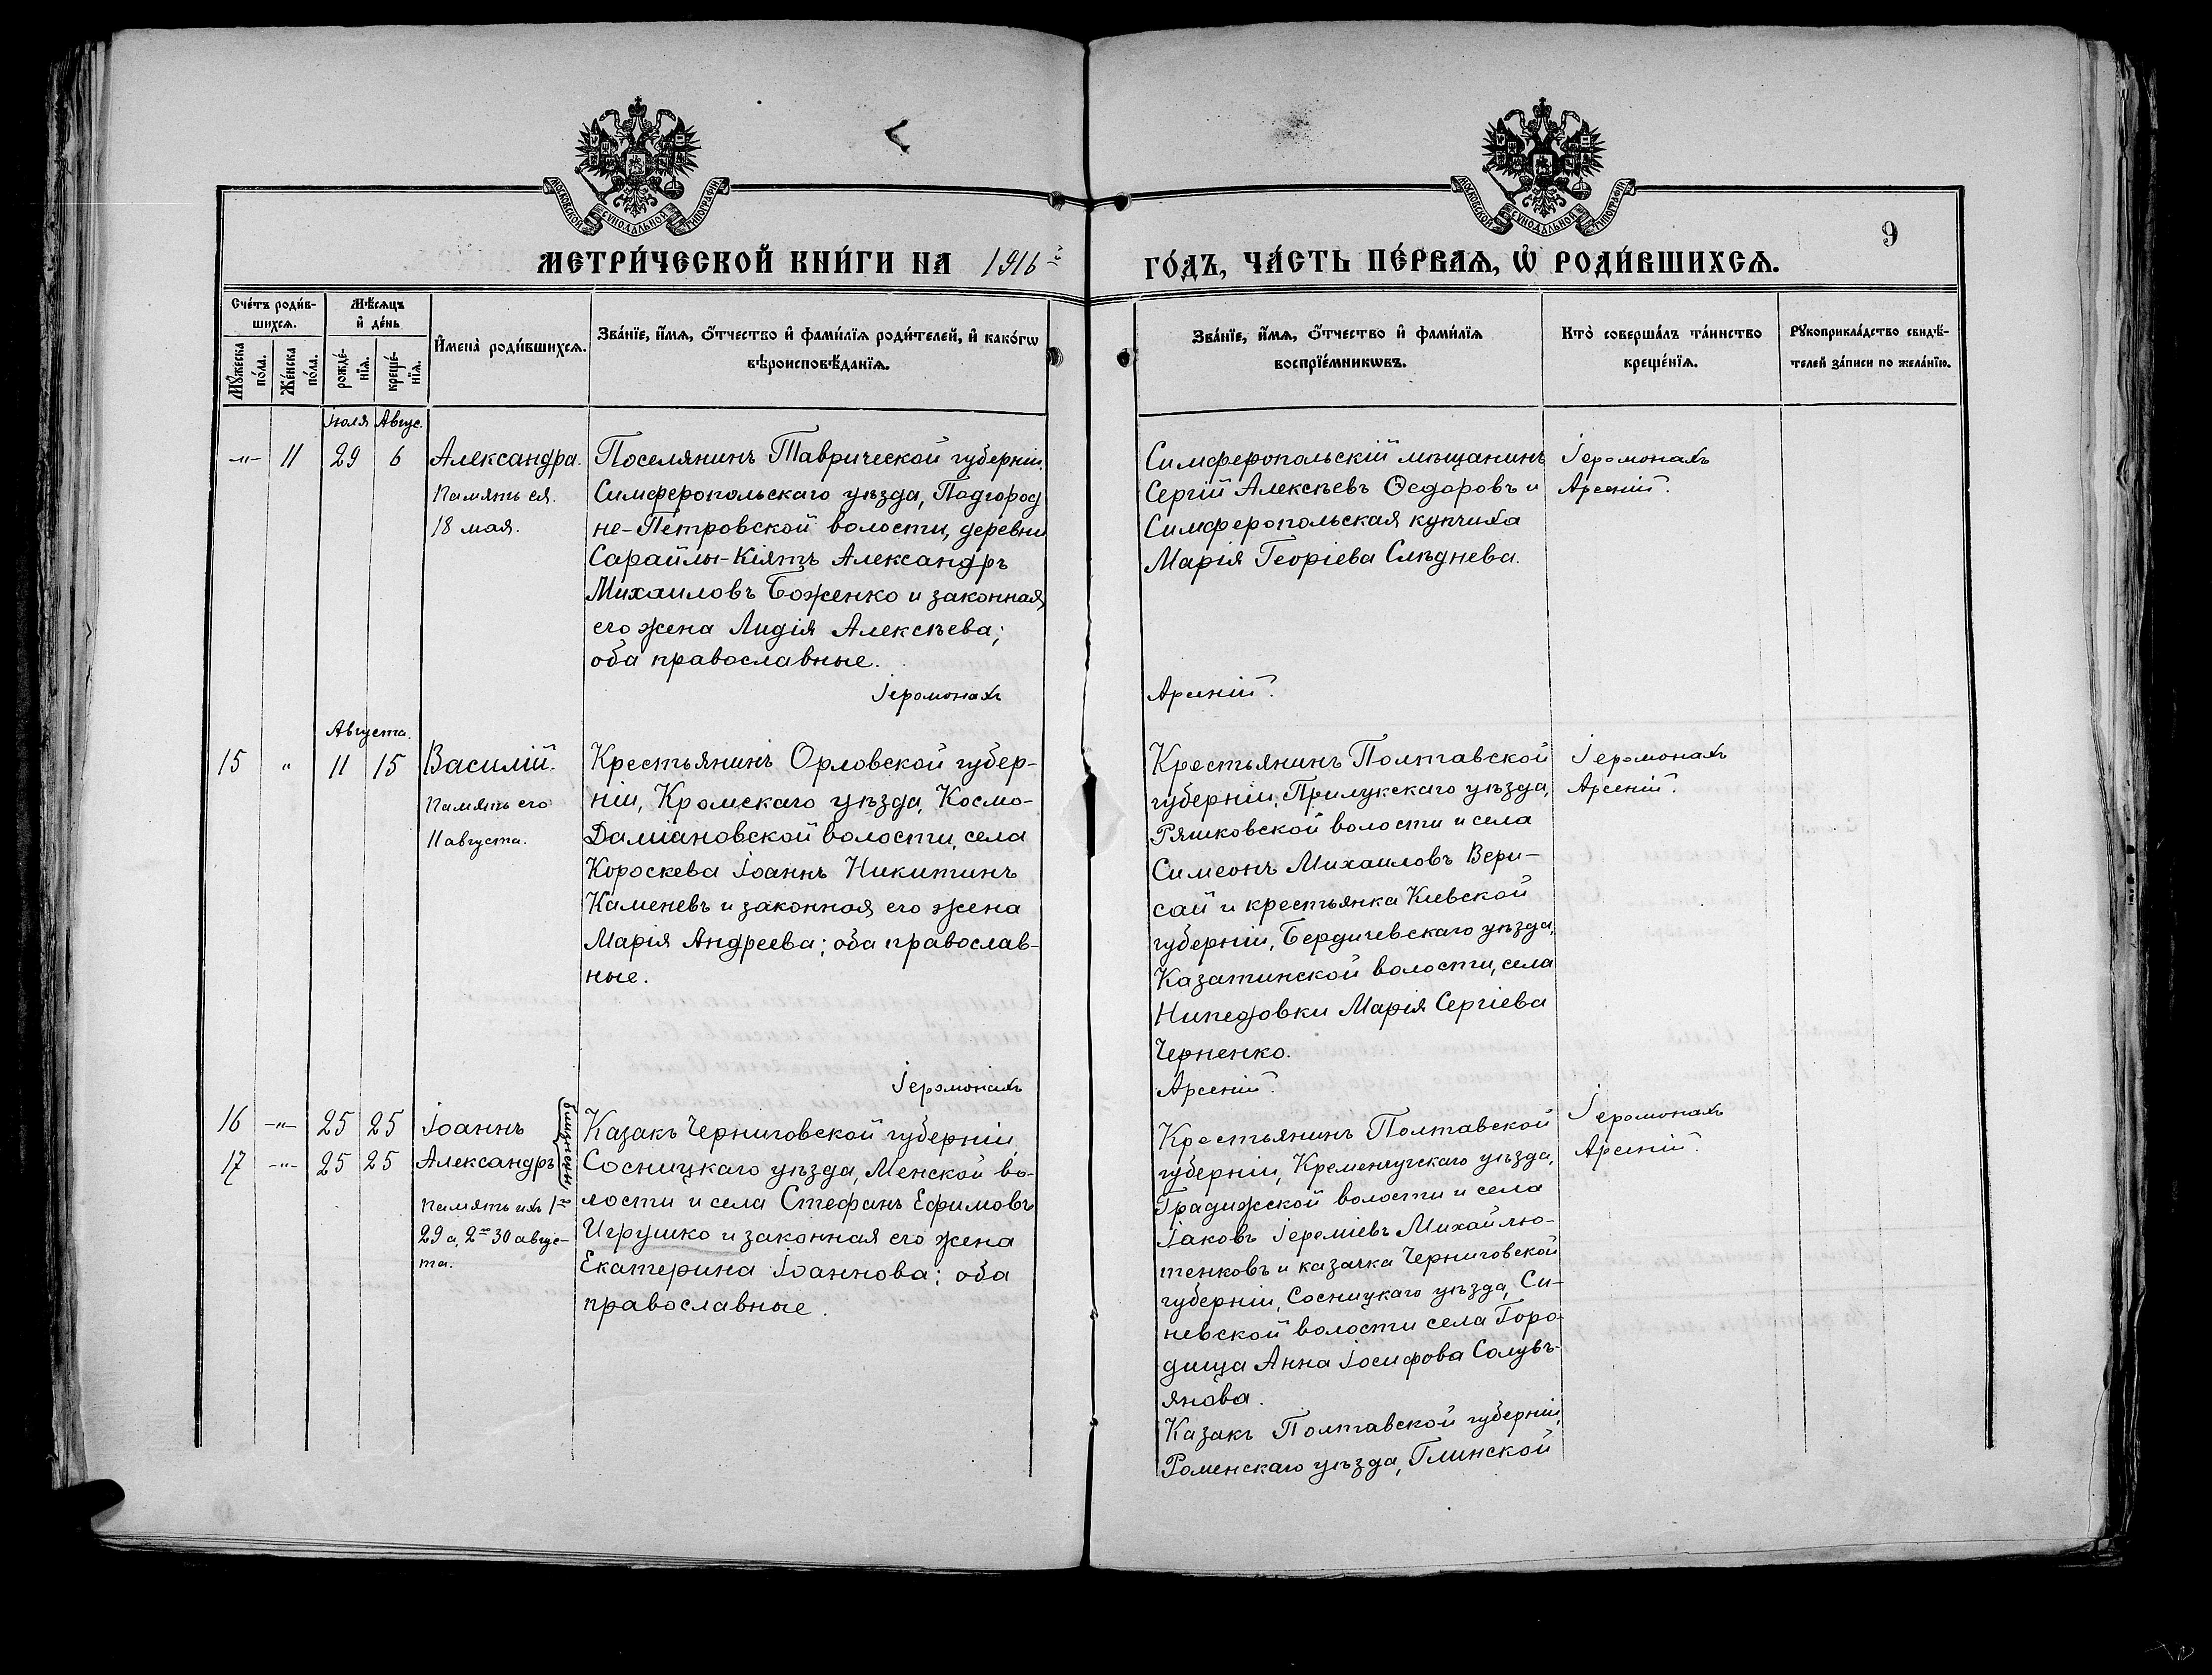 МОСКОВСКОЙ СѴНОДАЛЬНОЙ ТИПОГРАФІИ
МОСКОВСКОЙ СѴНОДАЛЬНОЙ ТИПОГРАФІИ
9
МЕТРИ́ЧЕСКОЙ КНИ́ГИ НА 1916й ГО́ДЪ, ЧА́СТЬ ПЕ́РВАѦ, Ѡ҆ РОДИ́ВШИХСѦ.
Сче́тъ роди́в-
шихсѧ.
Мꙋ́жеска по́ла.
Же́нска по́ла.
Мѣ́сѧцъ
и҆ де́нь
рожде́-
нїѧ.
креще́-
нїѧ.
И҆мена̀ роди́вшихсѧ.
Зва́нїе, и҆́мѧ, ѻ҆́тчество и҆ фами́лїѧ роди́телей, и҆ како́гѡ
вѣроисповѣ́данїѧ.
Зва́нїе, и҆́мѧ, ѻ҆́тчество и҆ фами́лїѧ
воспрїе́мникѡвъ.
Кто̀ соверша́лъ та́инство
креще́нїѧ.
Рꙋкоприкла́дство свидѣ́-
телей за́писи по жела́нїю.
Іюля Авгус.
-"- 11 29 6
Александра.
Память ея.
18 мая.
Поселянинъ Таврической губерніи,
Симферопольскаго уѣзда, Подгород
не-Петровской волости, деревни
Сарайлы-Кіятъ Александръ
Михаиловъ Боженко и законная
его жена Лидія Алексѣева;
оба православные.
Іеромонахъ
Симферопольскій мѣщанинъ
Сергій Алексѣевъ Ѳедоровъ и
Симферопольская купчиха
Марія Георгіева Слѣднева.
Арсеній.
Іеромонахъ
Арсеній.
Августа.
15 " 11 15
Василій.
Память его
11 августа.
Крестьянинъ Орловской губер-
ніи, Кромскаго уѣзда, Космо-
Даміановской волости, села
Короскева Іоаннъ Никитинъ
Каменевъ и законная его жена
Марія Андреева; оба православ-
ные.
Іеромонахъ
Крестьянинъ Полтавской
губерніи, Прилукскаго уѣзда,
Ряшковской волости и села
Симеонъ Михаиловъ Вери-
сай и крестьянка Кіевской
губерніи, Бердичевскаго уѣзда,
Казатинской волости, села
Нипедовки Марія Сергіева
Черненко.
Арсеній.
Іеромонахъ
Арсеній.
16 -"- 25 25
17 -"- 25 25
Іоаннъ
Александръ
близнецы
Память ихъ 1го
29 а, 2го 30 авгус-
та.
Казакъ Черниговской губерніи
Сосницкаго уѣзда, Менской во-
лости и села Стефанъ Ефимовъ
Игрушко и законная его жена
Екатерина Іоаннова; оба
православные.
Крестьянинъ Полтавской
губерніи, Кременчугскаго уѣзда,
Градижской волости и села
Іаковъ Іереміевъ Михайлю-
тенковъ и казачка Черниговской
губерніи, Сосницкаго уѣзда, Си-
невской волости села Горо-
дища Анна Іосифова Солувь-
янова.
Казакъ Полтавской губерніи,
Роменскаго уѣзда, Глинской
Іеромонахъ
Арсеній.